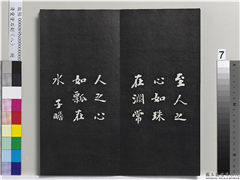 至人之
心如珠
在淵常
人之心
如瓢在
水 子瞻
7